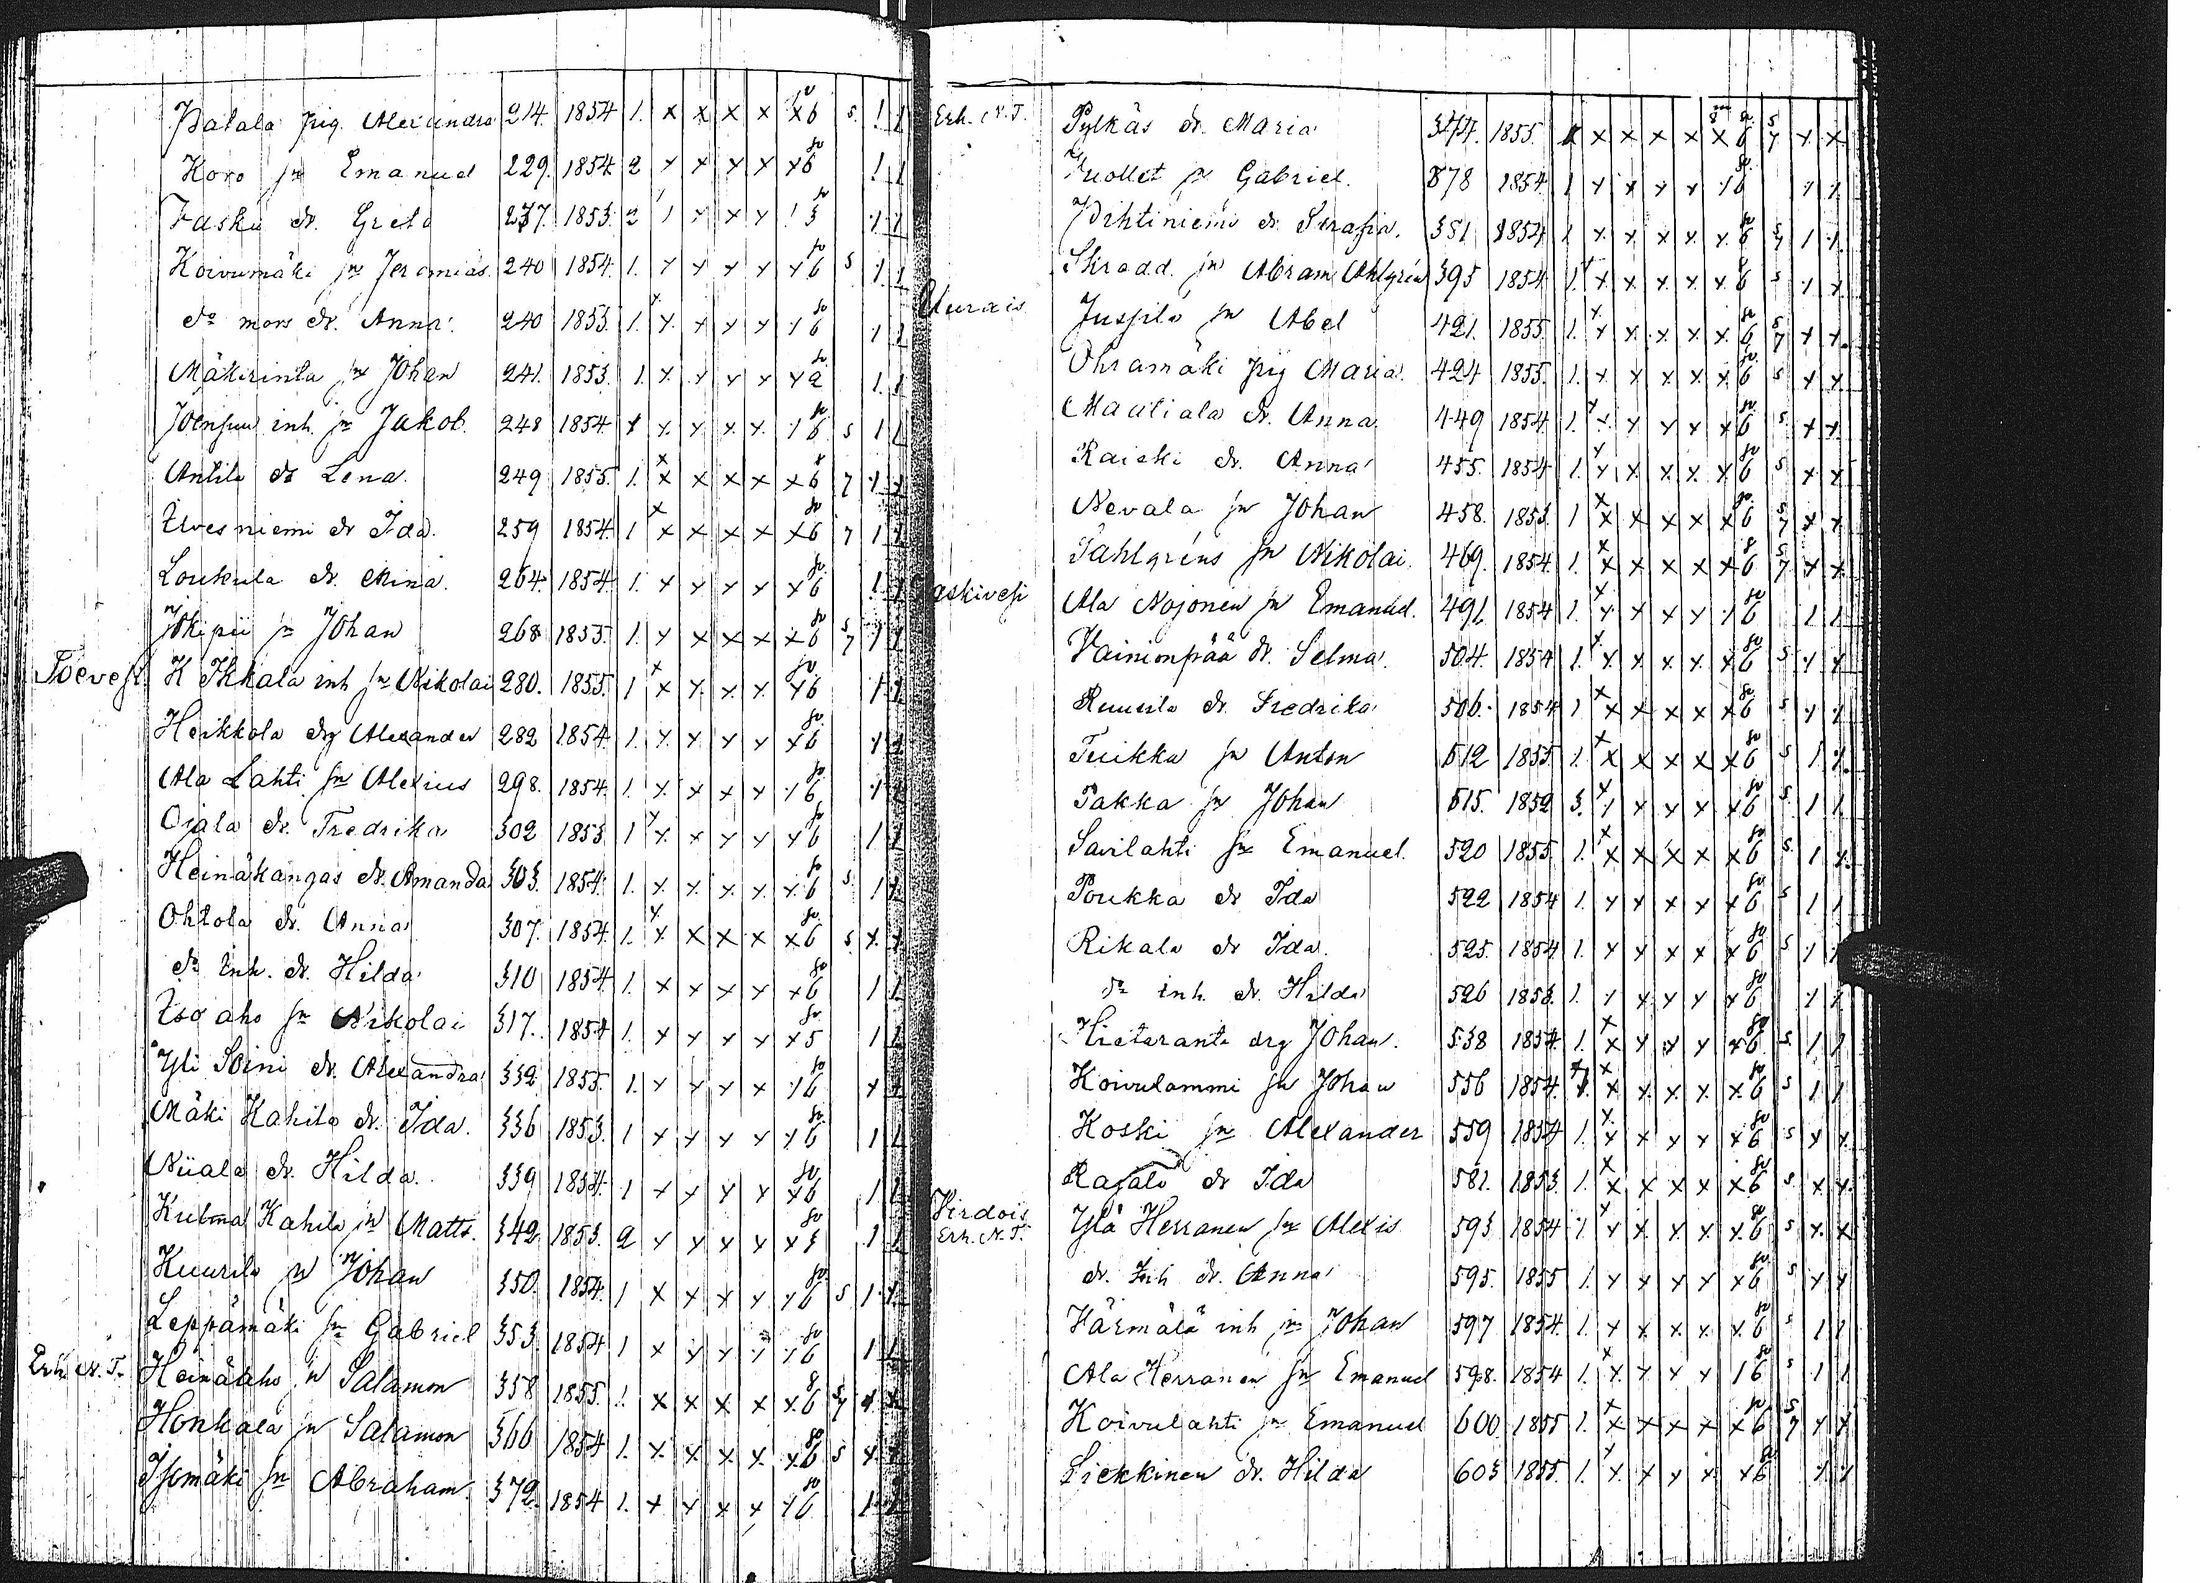 Patala pig. Alexandra 214. 1854 1. x x x x x6 5. 1 1
Koro sn Emanuel 229. 1854 2 x x x x x6 1 1
Fasku dr. Greta 237. 1853. 2 1 x x x 1 3 1 1
Koivumäki sn Jeremias. 240 1854. 1. x x x x x6 5 1 1
do mors dr. Anna. 240 1853. 1. x x x x x6 1 1
Mäkirinta sn Johan 241. 1853. 1. x x x x x2 1 1
Joensuu inh. sn Jakob. 248 1854. 1 x x x x 16 5 1 1
Antila dr Lena. 249 1855. 1. x x x x x6 7 1 1
Uvesniemi dr Ida. 259 1854. 1 x x x x x6 7 1 1
Loukula dr. Mina. 264. 1854 1. x x x x x6 1 1
Jokipii sn Johan 268 1855. 1. x x x x x6 5 7 1 1
K Ikkala inh sn Nikolai 280. 1855. 1 x x x x x6 1 1
Heikkola drg Alexander 282 1854. 1. x x x x x6 1 1
Ala Lahti sn Alexius 298. 1854. 1. x x x x 16 1 1
Ojala dr. Fredrika 302 1853 1 x x x x x6 1 1
Heinäkangas dr. Amanda 303. 1854. 1. x x x x x6 5 1 1
Ohtola dr. Anna 307. 1854. 1. x x x x x6 5 x x
do Inh. dr. Hilda 310 1854. 1. x x x x x6 1 1
Iso aho sn Nikolai 317. 1854 1. x x x x x5 1 1
Yli Soini dr. Alexandra 332 1855. 1. x x x x 16 x x
Mäki Kahila dr. Ida. 336 1853. 1 x x x x x6 1 1
Niiala dr. Hilda. 339 1854. 1 x x x x x6 1 1
Kulma Kahila sn Matts. 342 1853. 2 x x x x x3 1 1
Kuurila sn Johan 350. 1854. 1 x x x x x6 5 1 1
Leppämäki sn Gabriel 353. 1854 1 x x x x x6 1 1
Erh. N. T. Heinäaho sn Salamon 358 1855. 1. x x x x x6 5 7 x x
Honkala sn Salamon 366 1854 1. x x x x x6 5 x x
Isomäki sn Abraham. 372. 1854 1. x x x x x6 1 1
Erh. N. T. Pylkäs dr. Maria 1855. x x x x x6 5 7 x x
Puollet sn Gabriel. 378 1854. 1 x x x x 16 x x
Pihtiniemi dr. Serafia. 381 1854 1 x x x x x6 5 7 1 1
Skradd. sn Abram Ahlgrén 395 1854. 1 x x x x x6 5 x x
Juspila sn Abel 421. 1855. 1. x x x x x6 5 7 x x
Ohramäki pig Maria. 424 1855. 1. x x x x x6 5 x x
Mautiala dr. Anna. 449 1854. 1. x x x x x6 5 x x
Raiski dr. Anna 455. 1854 1. x x x x x6 5 x x
Nevala sn Johan 458. 1853. 1 x x x x x6 5 7 x x
Sahlgréns sn Nikolai. 469. 1854. 1. x x x x x6 5 7 x x
Ala Nojonen sn Emanuel. 491. 1854 1. x x x x 16 1 1
Vainionpää dr. Selma. 504. 1854 1. x x x x x6 5 x x
Ruusila dr. Fredrika 506. 1854 1. x x x x x6 5 x x
Tuikka sn Anton 512 1855 1. x x x x x6 5 1 x
Pakka sn Johan 515. 1852 3. 1 x x x x6 5 1 1
Savilahti sn Emanuel. 520 1855 1. x x x x x6 5 1 x
Poukka dr Ida 522 1854 1. x x x x x6 5 1 1
Rikala dr Ida. 525. 1854 1. x x x x x6 5 1 1
do inh. dr. Hilda 526 1853. 1. x x x x x6 x x
Hietaranta drg Johan. 538 1854. 1. x x x x x6 5 1 1
Koivulammi sn Johan 556 1854. x x x x x6 5 1 1
Koski sn Alexander 559 1854 1. x x x x x6 5 x x
Rajala dr Ida 581. 1853. 1. x x x x x6 5 x x
Virdois
Erh. N. T. Ylä Herranen sn Alexis 593 1854 1 x x x x x6 5 x x
dr. Inh dr. Anna 595. 1855 1. x x x x x6 5 x x
Härmälä inh sn Johan 597 1854. 1. x x x x x6 5 1 1
Ala Herranen sn Emanuel 598. 1854 1. x x x x 16 5 1 1
Koivulahti sn Emanuel 600. 1855 1. x x x x x6 5 7 x x
Liekkinen dr. Hilda 603 1855. 1. x x x x x6 x x